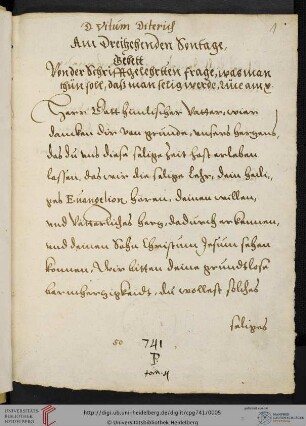 D. Vitum Diterich
1
Am Dreitzehenden Sontage,
Gebett
Von der Schrifftgelehrtten frage, was man
thun soll, daß man selig werde, Luce am x
Herr Gott himlischer Vatter, wier
dancken dir von grunde, unsers hertzens,
das du uns diese selige zeit hast erleben
lassen, das wir die selige lehr, dein heili,
ges Euangelion hören, deinen willen,
und Vätterliches hertz, dadurch erkennen,
und deinen Sohn Christum Jesum sehen
konnen, Wir bitten deine grundtlose
barmhertzigkeidt, du wollest solches
seliges
50
741
P
UNIVERSITÄTS-
BIBLIOTHEK
HEIDELBERG
http://digi.ub.uni-heidelberg.de/diglit/cpg741/0005
© Universitätsbibliothek Heidelberg